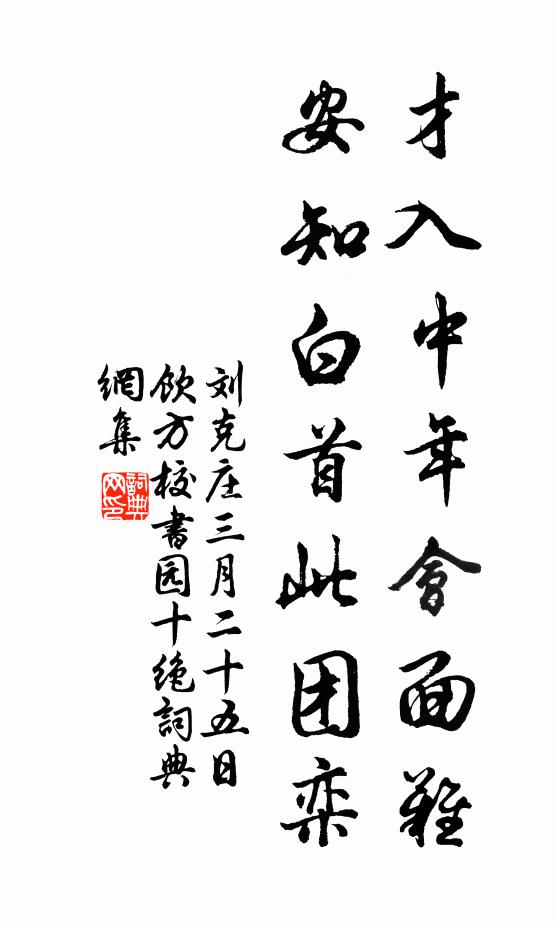 才入中年會面難
安知白首此团栾
刘克庄三月二十五日
饮方校書园十绝詞典
網集
詞典网印